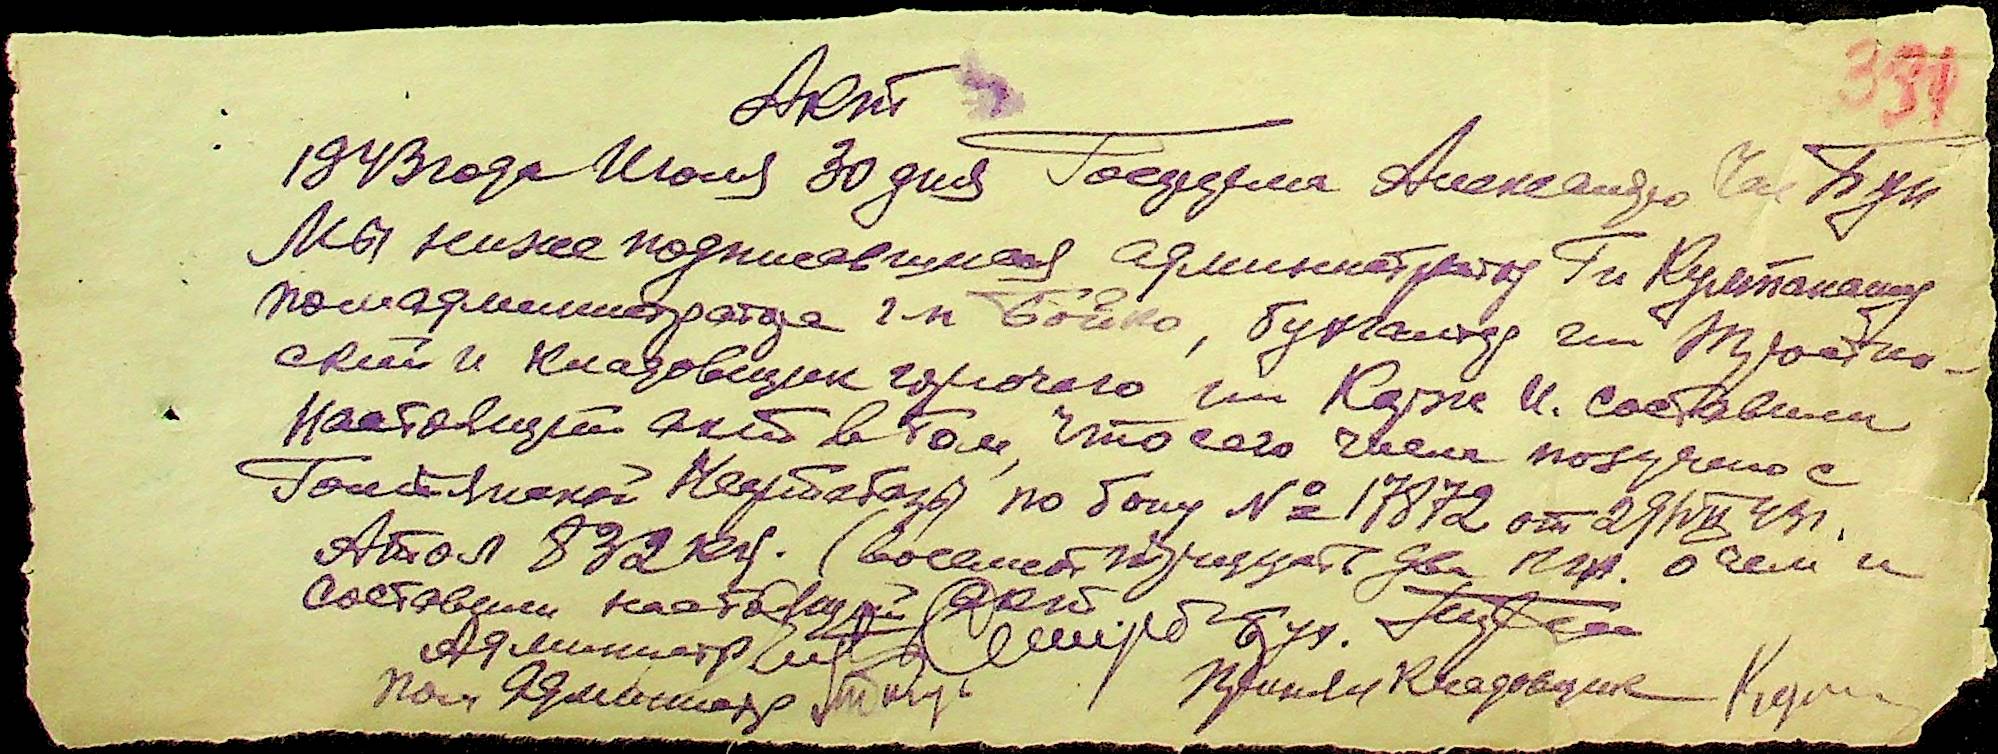 331
Акт
1943 года Июля 30 дня Госферма Александро
Мы нижеподписавшиеся администратор Г-н
помадминистратора г-н Бойко, бухгалтер г-н
ский и кладовщик горючего г-н И. составили
настоящий акт в том, что сего числа получено с
Голтянской Нефтебазы по бону № 17872 от 29/VII 43 г.
Автол 832 кгр. (восемьсот тридцать два кгр. о чем и
составили настоящий акт
Администр бух.
пом Администр Принял Кладовщик